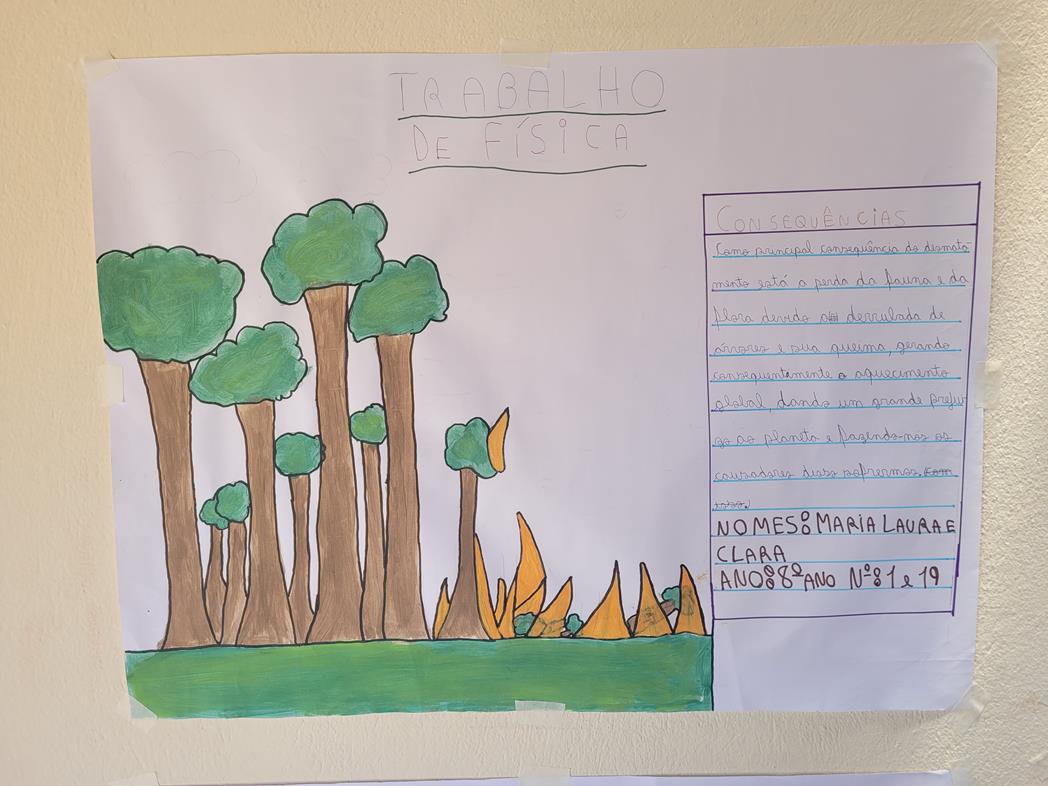 TRABALHO
DE FÍSICA
CONSEQUÊNCIAS
Como principal consequência do desmata
mento está a perda da fauna e da
flora devido a derrubada de
árvores e sua queima, gerando
consequentemente o aquecimento
global, dando um grande prejuí
zo ao planeta e fazendo-nos os
causadores disso sofrermos.
NOMES: MARIA LAURA E
CLARA
ANO: 8º ANO Nº: 1 e 19